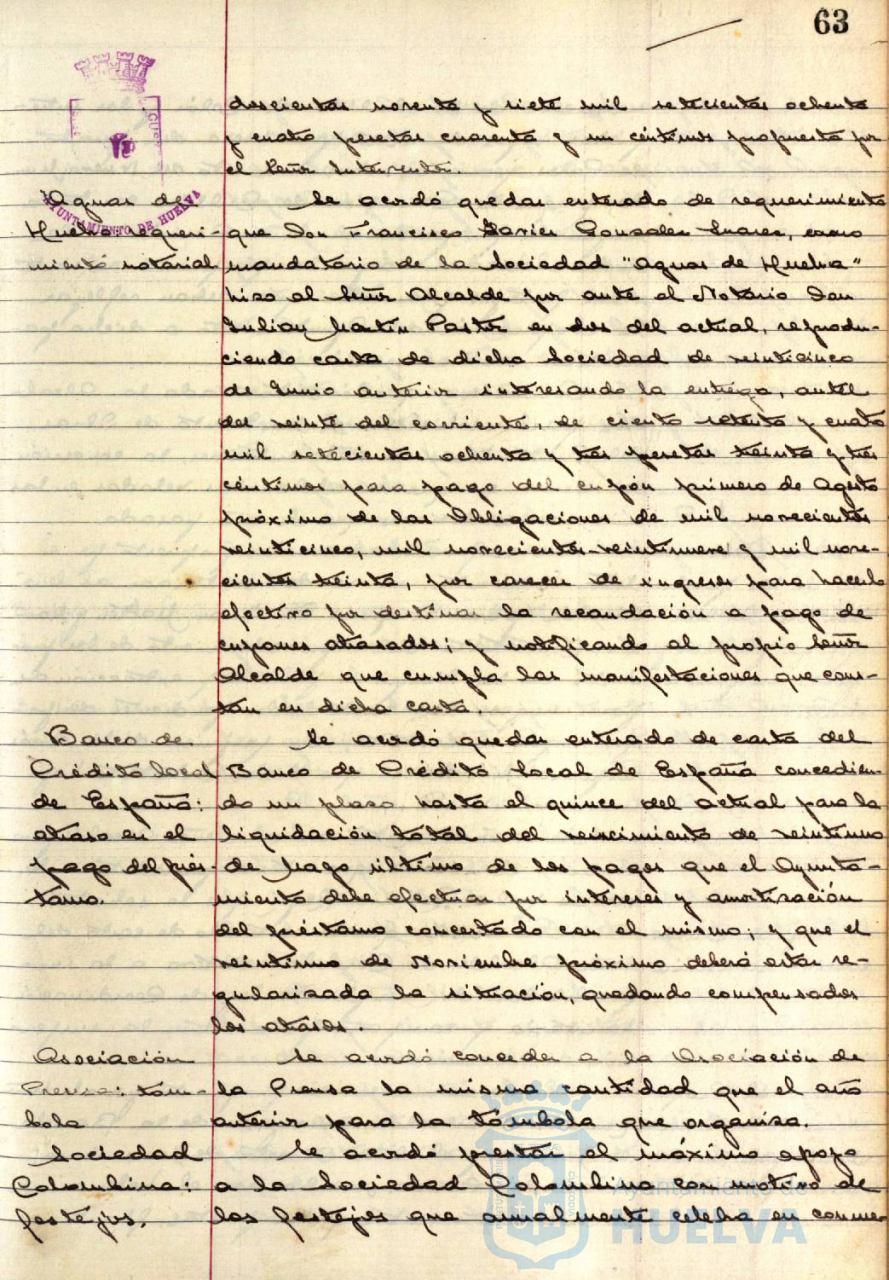 63
doscientas noventa y siete mil setecientas ochenta
y cuatro pesetas cuarenta y un céntimos propuesta por
el Señor Interventor.
AYUNTAMIENTO DE HUELVA
Aguas de
Huelva: requeri-
miento notarial
Se acordó quedar enterado de requerimiento
que Don Francisco Javier Gonzalez Suarez, como
mandatario de la Sociedad "Aguas de Huelva"
hizo al Señor Alcalde por ante el Notario Don
Julian Martin Pastor en dos del actual, reprodu-
ciendo carta de dicha Sociedad de veinticinco
de Junio anterior interesando la entrega, antes
del veinte del corriente, de ciento setenta y cuatro
mil setecientas ochenta y tres pesetas treinta y tres
céntimos para pago del cupón primero de Agosto
próximo de las Obligaciones de mil novecientos
veinticinco, mil novecientos veintinueve y mil nove-
cientos treinta, por carecer de ingresos para hacerlo
efectivo por destinar la recaudación a pago de
cupones atrasados; y notificando al propio Señor
Alcalde que cumpla las manifestaciones que cons-
tan en dicha carta.
Banco de
Crédito local
de España:
atraso en el
pago del prés-
tamo.
Se acordó quedar enterado de carta del
Banco de Crédito Local de España concedien-
do un plazo hasta el quince del actual para la
liquidación total del vencimiento de veintiuno
de Mayo último de los pagos que el Ayunta-
miento debe efectuar por intereses y amortización
del préstamo concertado con el mismo; y que el
veintiuno de Noviembre próximo deberá estar re-
gularizada la situación, quedando compensados
los atrasos.
Asociación
Prensa: tóm-
bola
Se acordó conceder a la Asociación de
la Prensa la misma cantidad que el año
anterior para la tómbola que organiza.
Sociedad
Colombina:
festejos.
Se acordó prestar el máximo apoyo
a la Sociedad Colombina con motivo de
los festejos que anualmente celebra en conme-
Ayuntamiento de
HUELVA